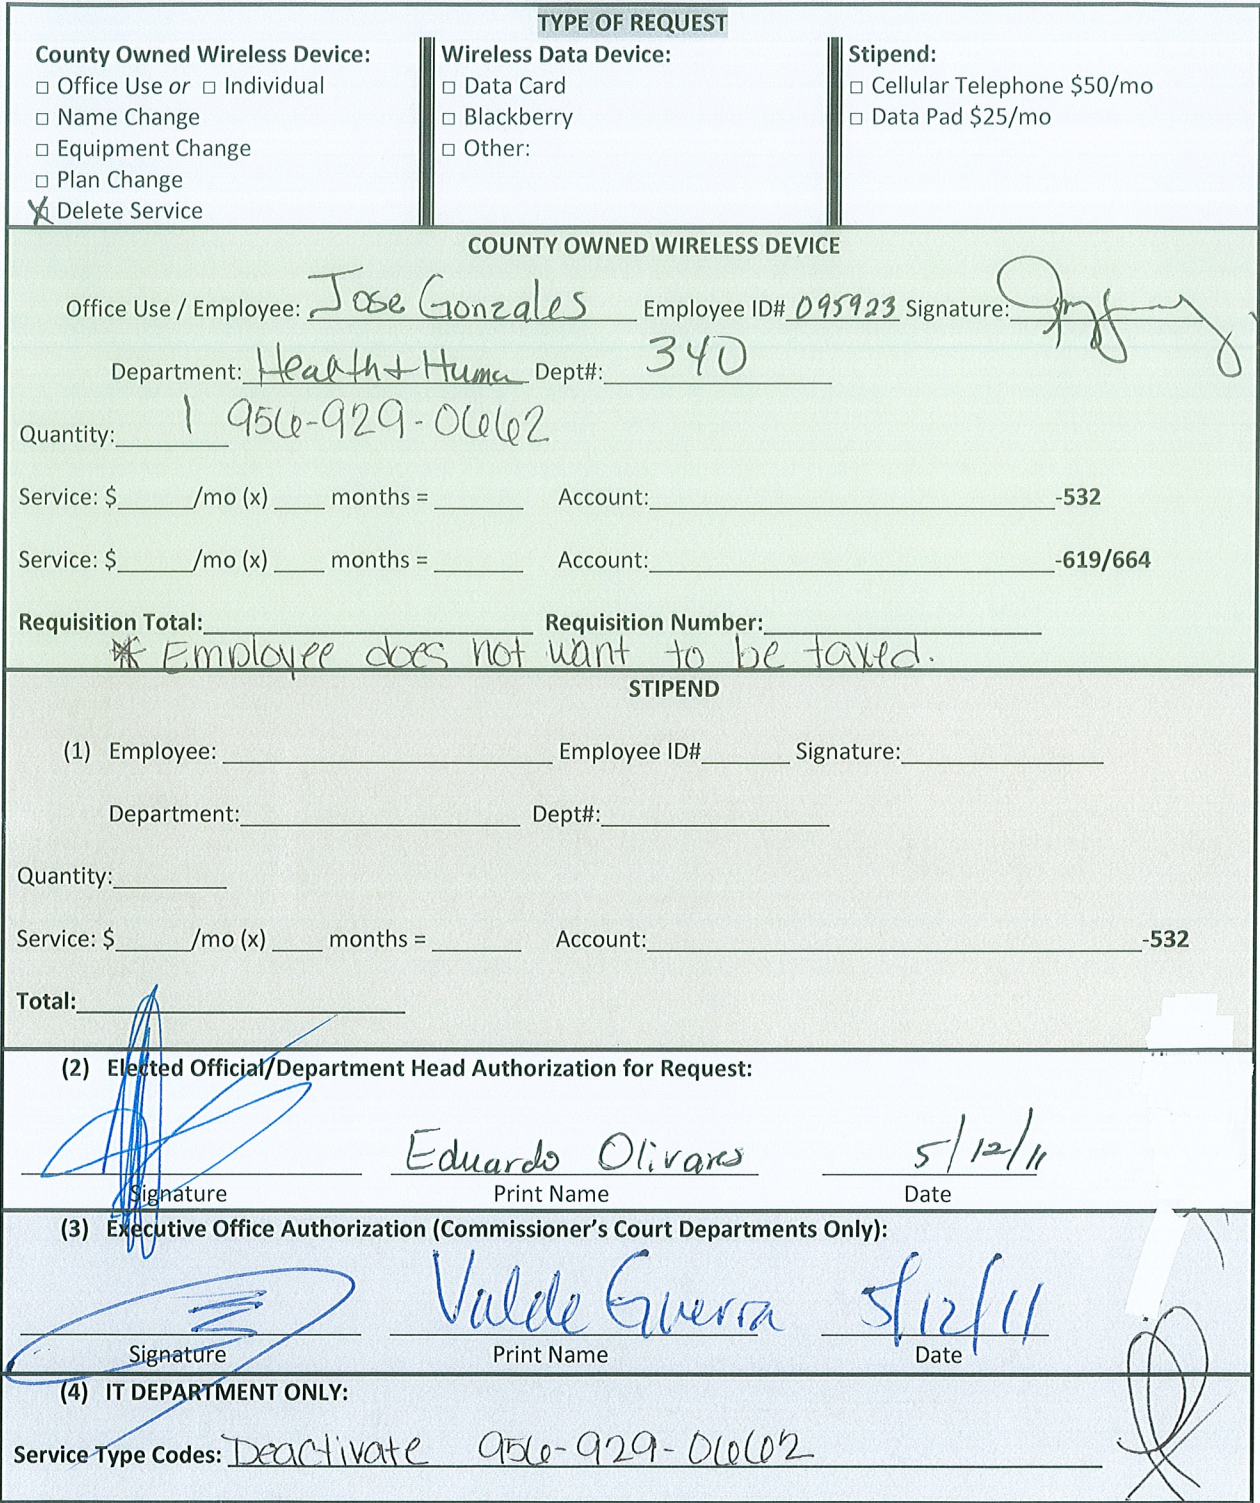 TYPE OF REQUEST
County Owned Wireless Device:
□ Office Use or □ Individual
□ Name Change
□ Equipment Change
□ Plan Change
X Delete Service
Wireless Data Device:
□ Data Card
□ Blackberry
□ Other:
Stipend:
□ Cellular Telephone $50/mo
□ Data Pad $25/mo
COUNTY OWNED WIRELESS DEVICE
Office Use / Employee: Jose Gonzales Employee ID# 095923 Signature:
Department: Health + Huma Dept#: 340
Quantity: 1 956-929-0662
Service: $______/mo (x) ____ months = _______ Account:____________-532
Service: $______/mo (x) ____ months = _______ Account:____________-619/664
Requisition Total:____________ Requisition Number:____________
* Employee does not want to be taxed.
STIPEND
(1) Employee: ____________ Employee ID#_______ Signature:____________
Department:____________ Dept#:____________
Quantity:_________
Service: $______/mo (x) ____ months = _______ Account:____________-532
Total:____________
(2) Elected Official/Department Head Authorization for Request:
Eduardo Olivares 5/12/11
Signature Print Name Date
(3) Executive Office Authorization (Commissioner's Court Departments Only):
Valde Guerra 5/12/11
Signature Print Name Date
(4) IT DEPARTMENT ONLY:
Service Type Codes: Deactivate 956-929-0662